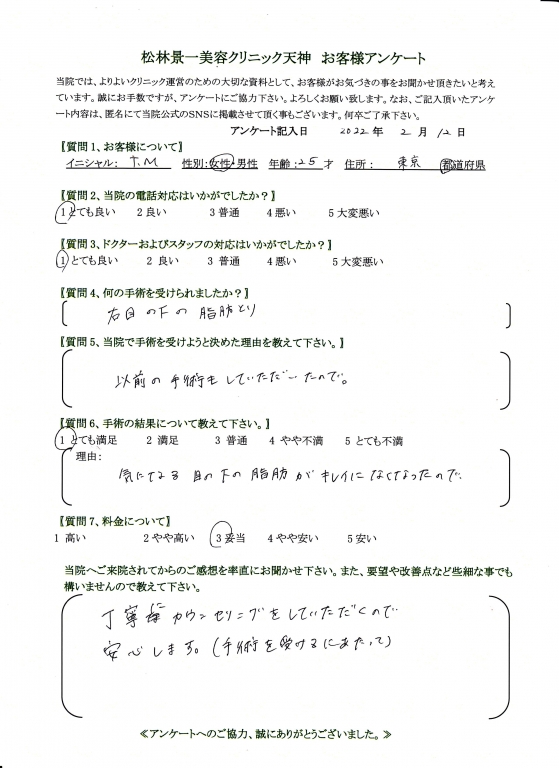 松林景一美容クリニック天神　お客様アンケート
当院では、よりよいクリニック運営のための大切な資料として、お客様がお気づきの事をお聞かせ頂きたいと考え
ています。誠にお手数ですが、アンケートにご協力下さい。よろしくお願い致します。なお、ご記入頂いたアンケ
ート内容は、匿名にて当院公式のSNSに掲載させて頂く事もございます。何卒ご了承下さい。
アンケート記入日　2022 年　2 月　12 日
【質問1、お客様について】
イニシャル： T.M　性別：女性・男性　年齢：25 才　住所：　東京　都道府県
【質問2、当院の電話対応はいかがでしたか？】
1 とても良い　2 良い　3 普通　4 悪い　5 大変悪い
【質問3、ドクターおよびスタッフの対応はいかがでしたか？】
1 とても良い　2 良い　3 普通　4 悪い　5 大変悪い
【質問4、何の手術を受けられましたか？】
右目の下の脂肪とり
【質問5、当院で手術を受けようと決めた理由を教えて下さい。】
以前の手術もしていただいたので。
【質問6、手術の結果について教えて下さい。】
1 とても満足　2 満足　3 普通　4 やや不満　5 とても不満
理由：
気になる目の下の脂肪がキレイになくなったので。
【質問7、料金について】
1 高い　2 やや高い　3 妥当　4 やや安い　5 安い
当院へご来院されてからのご感想を率直にお聞かせ下さい。また、要望や改善点など些細な事でも
構いませんので教えて下さい。
丁寧にカウンセリングをしていただくので
安心します。(手術を受けるにあたって)
≪アンケートへのご協力、誠にありがとうございました。≫